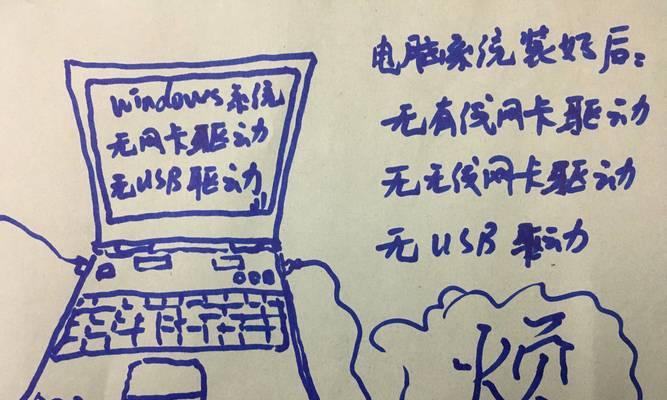 windows系统
无网卡驱动
无USB驱动
电脑系统装好后:
无有线网卡驱动
无无线网卡驱动
无USB驱动
烦